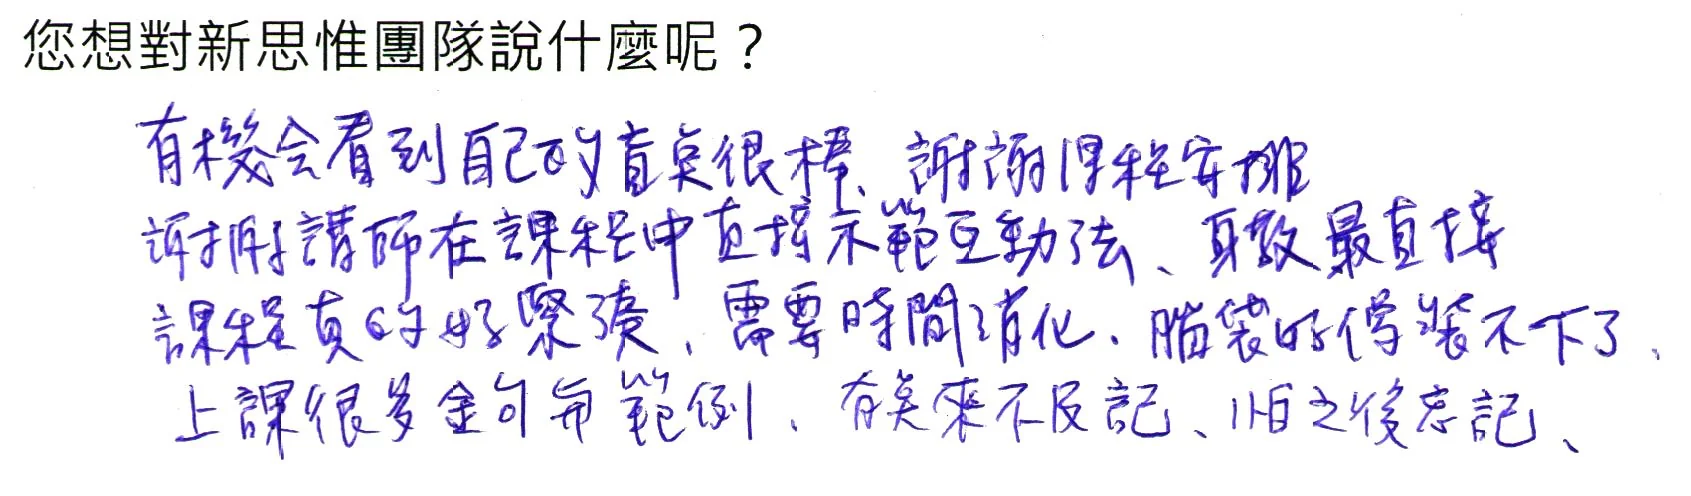 您想對新思惟團隊說什麼呢？
有機会看到自己的盲点很棒、謝謝課程安排
謝謝講師在課程中直接示範互動法、身教最直接
課程真的好緊湊，需要時間消化、腦袋好像裝不下了，
上課很多金句与範例，有点來不及記、怕之後忘記、